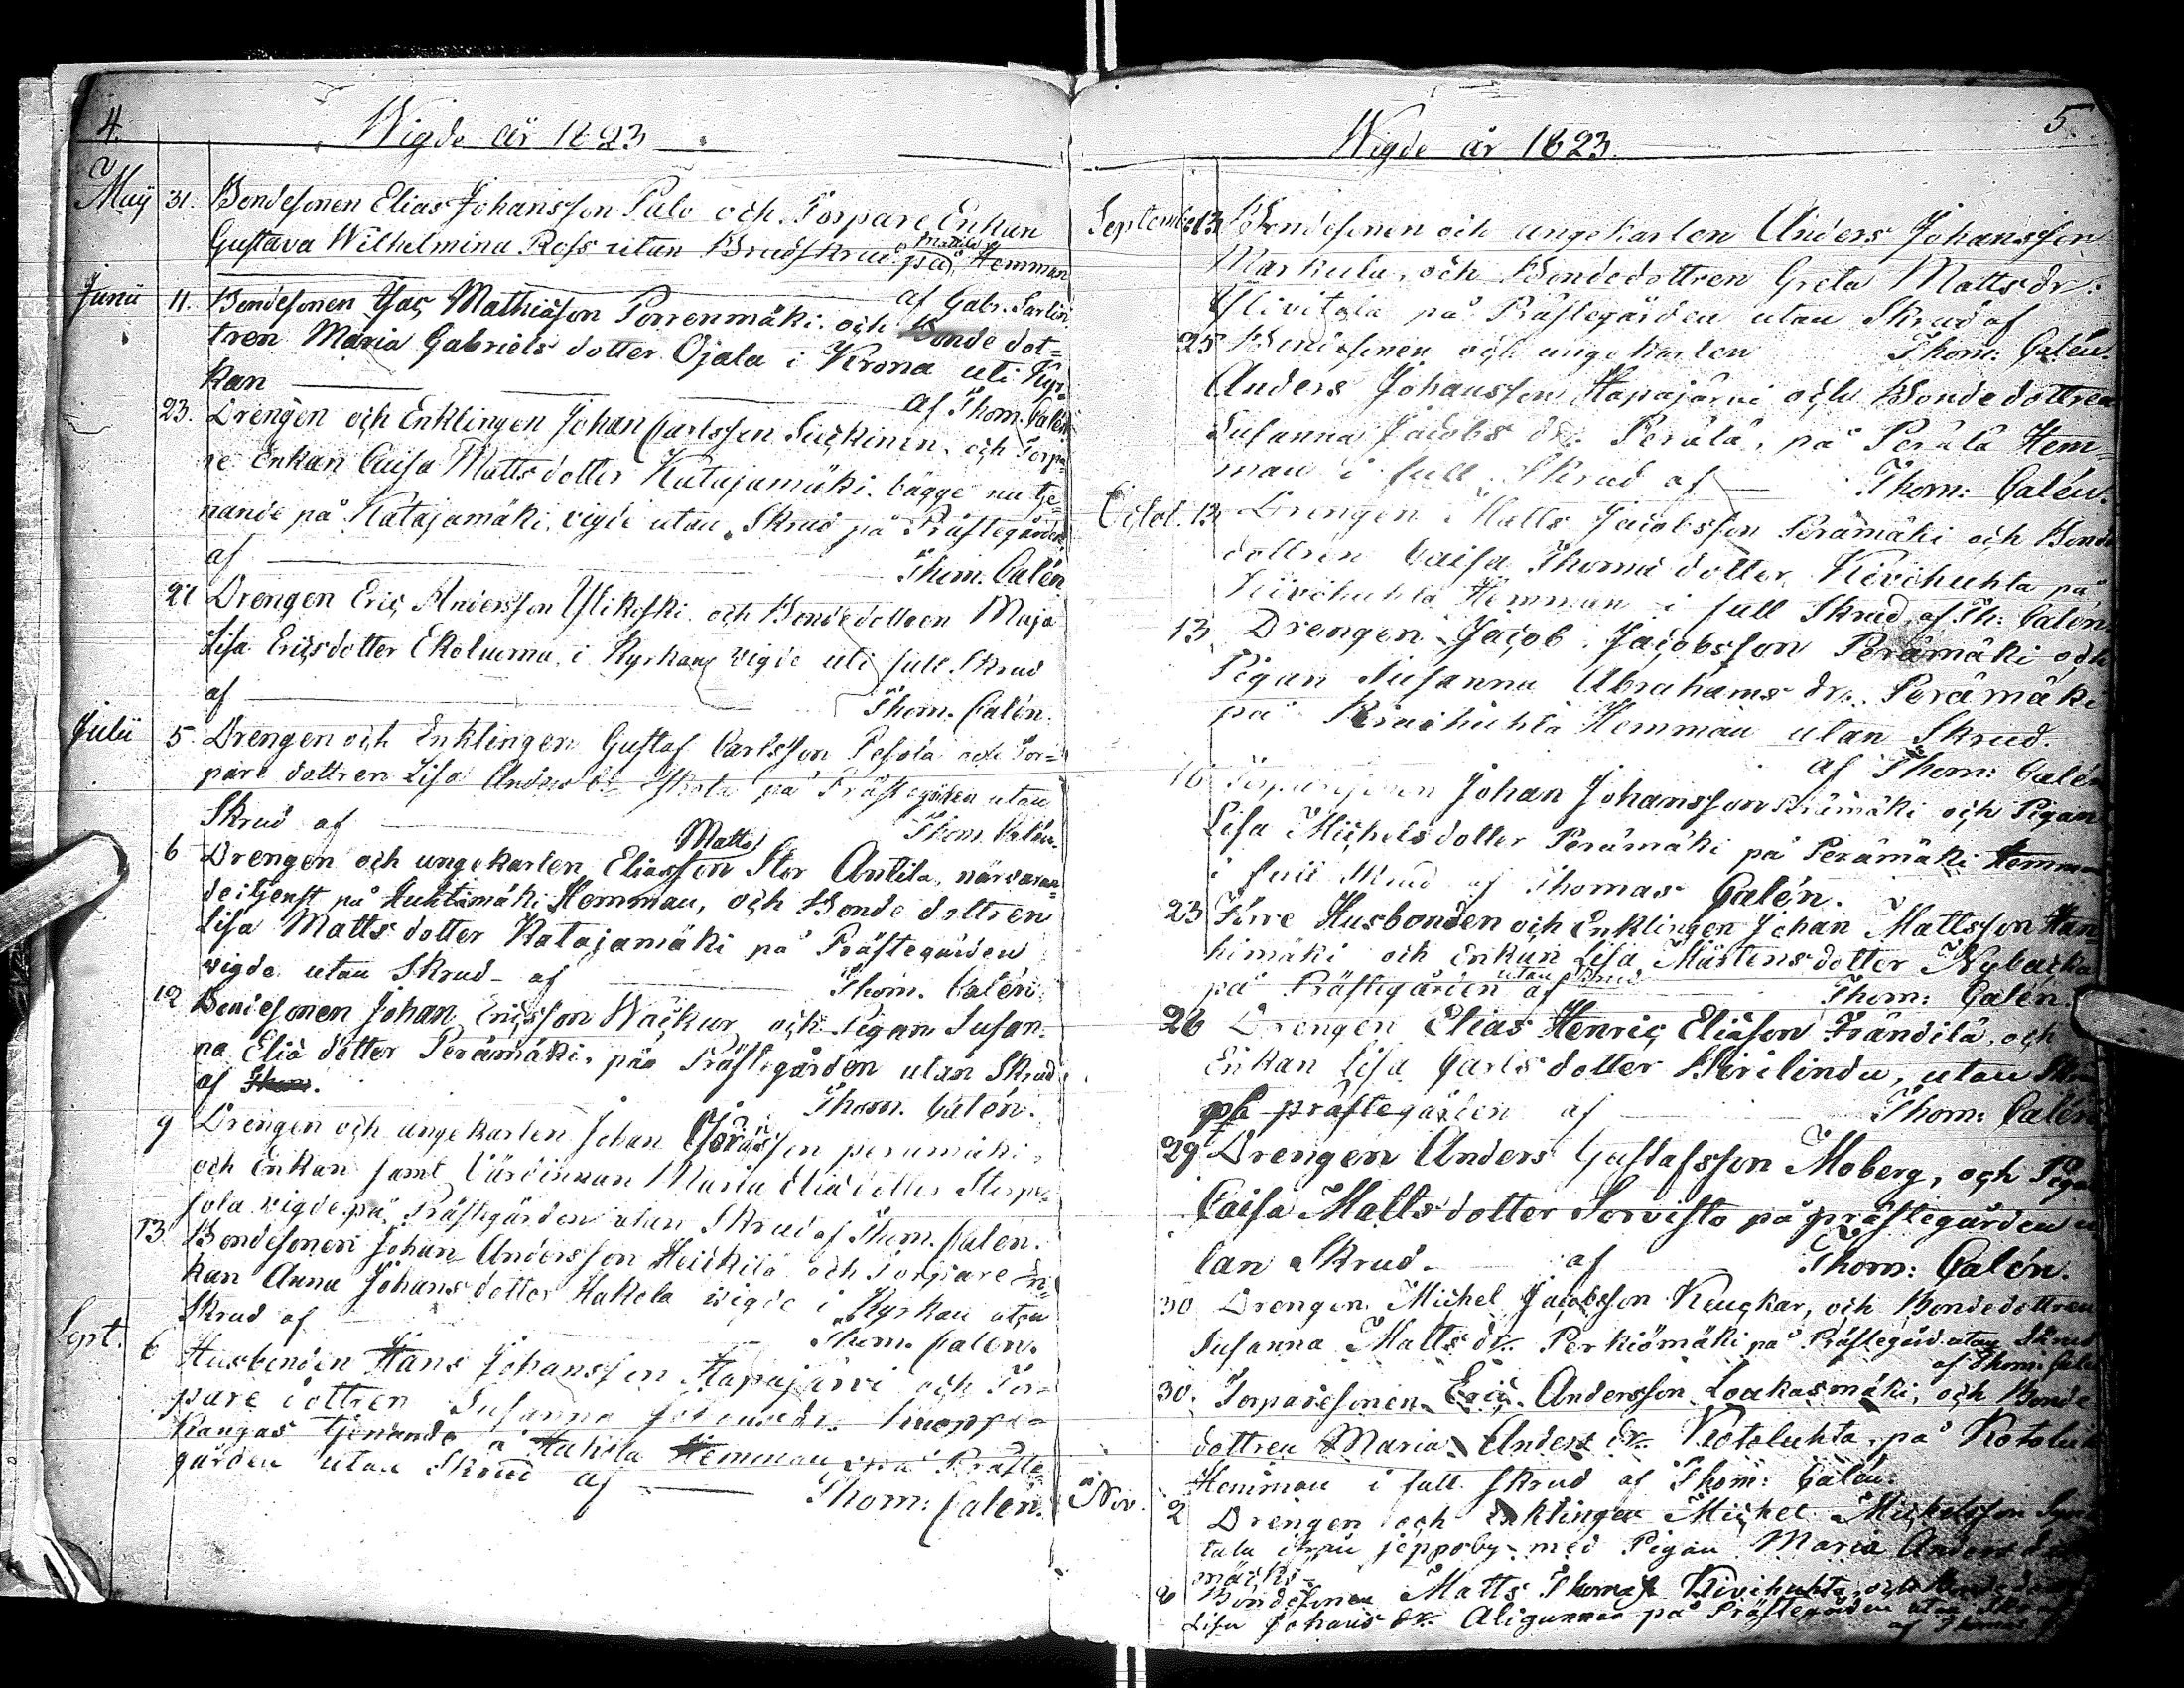 4.
Wigde år 1823
Maij 31. Bondesonen Elias Johansson Palo och Torpare Enkan
Gustava Wilhelmina Ross utan Brudskrud på Hemman
af Gabr. Sarlin.
Junii 11. Bondesonen Jac Mathiasson Porrenmäki och Bonde dot=
tren Maria Gabriels dotter Ojala i Krona uti Kyr=
kan af Thom. Calén
23. Drengen och Enklingen Johan Carlsson Suckinen och Torpa=
re Enkan Caisa Matts dotter Katajamäki bägge nu tje=
nande på Katajamäki, vigde utan Skrud på Prästegården
af Thom. Calén
21 Drengen Eric Andersson Ylikoski och Bondedottren Maja
Lisa Ericsdotter Ekoluoma i Kyrkan vigde uti full Skrud
af Thom. Calén.
Julii 5. Drengen och Enklingen Gustaf Carlsson Pesola och Tor=
pare dottren Lisa Anders dr. på Prästegården utan
Skrud af Thom. Calén.
Matts
6 Drengen och ungekarlen Eliasson Stor Antila, närvaran=
de i tjenst på Huhtamäki Hemman, och Bonde dottren
Lisa Matts dotter Katajamäki på Prästegården
vigde utan Skrud af Thom. Calén.
12 Bondesonen Johan Ericsson Wackur och Pigan Susan=
na Elia dotter Perämäki, på Prästegården utan Skrud
af Thom.
Thom. Calén.
9 Drengen och ungekarlen Johan Göransson perämäki
och Enkan samt Värdinnan Maria Elia dotter Storpe=
sola vigde på Prästegården utan Skrud af Thom. Calén.
13. Bondesonen Johan Andersson Heickilä och Torpare En=
kan Anna Johans dotter Hakola vigde i Kyrkan utan
Skrud af Thom. Calén.
Sept. 6 Husbonden Hans Johansson Hapajärvi och Tor=
pare dottren Susanna Knoppi=
kangas tjenande å Hakola Hemman på Präste=
gården utan Skrud af Thom: Calén.
5.
Wigde år 1823.
September 13 Bondesonen och ungekarlen Anders Johansson
Markula, och Bondedottren Greta Mattsdr.
Ylivitala på Prästegården utan Skrud af
Thom: Calén.
25 Bondesonen och ungekarlen
Anders Johansson Hapajärvi och Bondedottren
Susanna Jacobs dr. Perälä, på Perälä Hem=
man i full Skrud af Thom: Calén.
Octob. 12 Drengen Matts Jacobsson Perämäki och Bonde
dottren Caisa Thoma dotter Kivihuhta på
Kivihuhta Hemman i full Skrud, af Th: Calén.
13 Drengen Jacob Jacobsson Perämäki och
Pigan Susanna Abrahams dr. Perämäki
på Kivihuhta Hemman utan Skrud.
af Thom: Calén
16 Torparesonen Johan Johansson Perämäki och Pigan
Lisa Michels dotter Perämäki på Perämäki Hemman
i full Skrud af Thomas Calén.
23 Förre Husbonden och Enklingen Johan Mattsson Han=
himäki och Enkan Lisa Mårtens dotter Nybacka
på Prästegården utan Skrud af Thom: Calén.
26 Drengen Elias Henric Eliasson Frändilä, och
Enkan Lisa Carls dotter Birilinda, utan Skrud
på prästegården af Thom: Calén
29 Drengen Anders Gustafsson Moberg, och Pigan
Caisa Matts dotter Sorvisto på prästegården u
tan Skrud. af Thom: Calén.
30 Drengen Michel Jacobsson Keuckar, och Bondedottren
Susanna Matts dr. Perkiömäki på Prästegård utan Skrud
af Thom. Calén
30. Torparesonen Eric Andersson Loukasmäki, och Bonde
dottren Maria Anders dr. Kotoluhta, på Kotoluhta
Hemman i full Skrud af Thom: Calén.
Nov. 2 Drengen och Enklingen Michel Michelsson
tala ifrån jeppoby med Pigan Maria Anders
mäcki
Bondesonen Matts Thomass. Kivihuhta och
Lisa Johans dr. Aligunnar på Prästegården utan Skrud
af Thomas